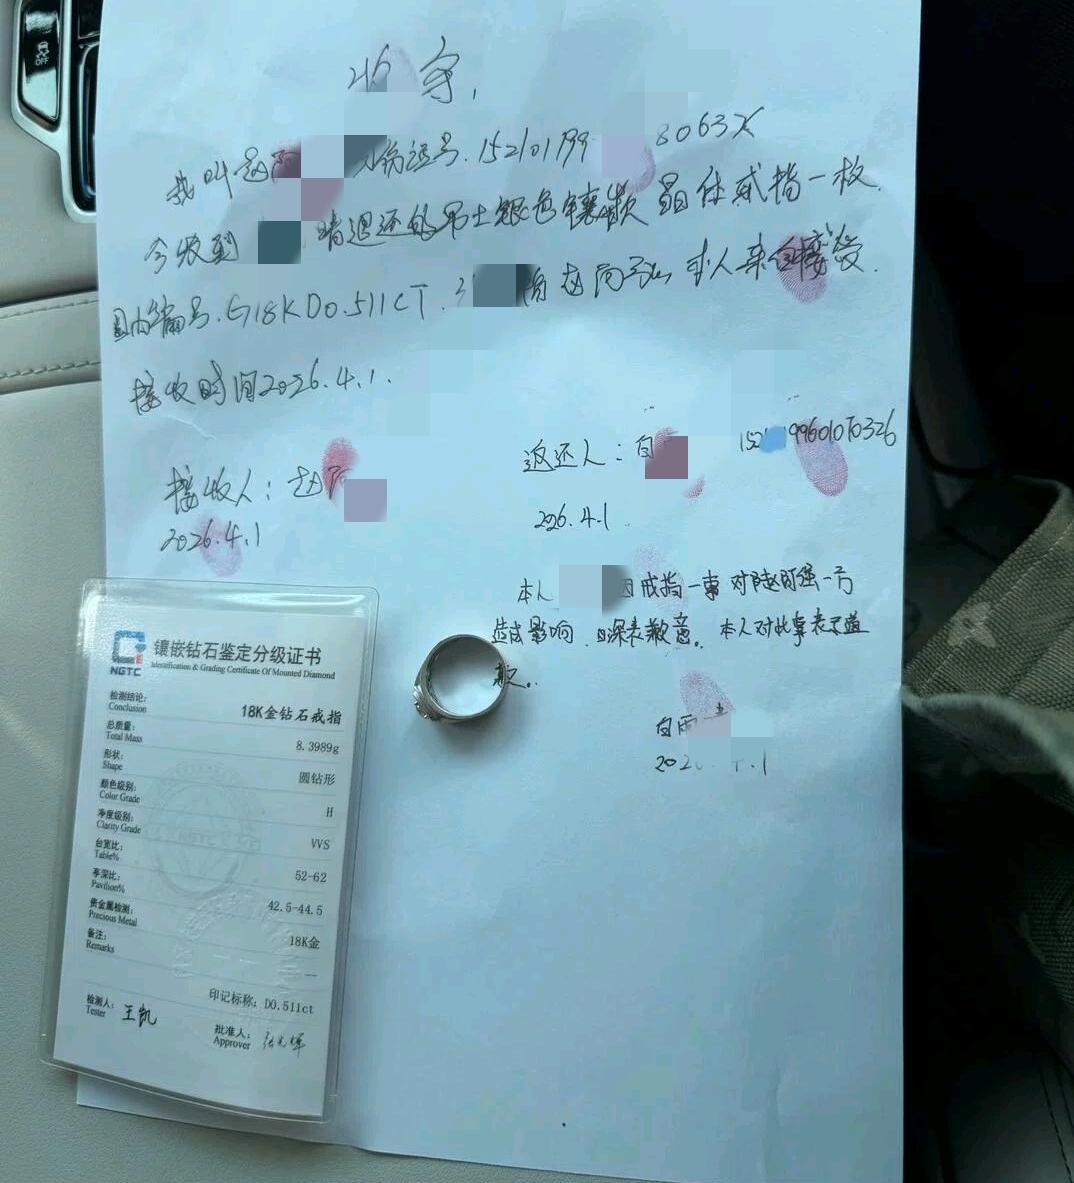 OFF
收字,
我叫赵 份证号.152101199 8063X
今收到 晴退还的男士银色镶嵌 戒指一枚.
圈内编号.G18KD0.511CT. 本人亲自接受.
接收时间2026.4.1.
返还人:白 152 99601070326
接收人:赵
2026.4.1
2026.4.1
本人 因戒指一事 对 强一方
造成影响. 深表歉意。本人对此事表示道
歉..
白雨
202 .1
NGTC
镶嵌钻石鉴定分级证书
Identification & Grading Certificate Of Mounted Diamond
检测结论: 18K金钻石戒指
Conclusion
总质量: 8.3989g
Total Mass
形状: 圆钻形
Shape
颜色级别: H
Color Grade
净度级别: VVS
Clarity Grade
台宽比: 52-62
Table%
亭深比: 42.5-44.5
Pavilion%
贵金属检测: 18K金
Precious Metal
备注: —
Remarks
印记标称: D0.511ct
检测人: 王凯
Tester
批准人:
Approver